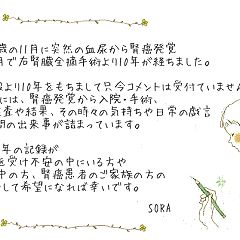 歳の11月に突然の血尿から腎癌発覚
月で右腎臓全摘手術より10年が経ちました。
より10年をもちまして只今コメントは受付ていませ
には、腎癌発覚から入院・手術、
査や結果、その時々の気持ちや日常の戯言
間の出来事が詰まっています。
年の記録が
受け不安の中にいる方や
中の方、腎癌患者のご家族の方の
して希望になれば幸いです。
SORA